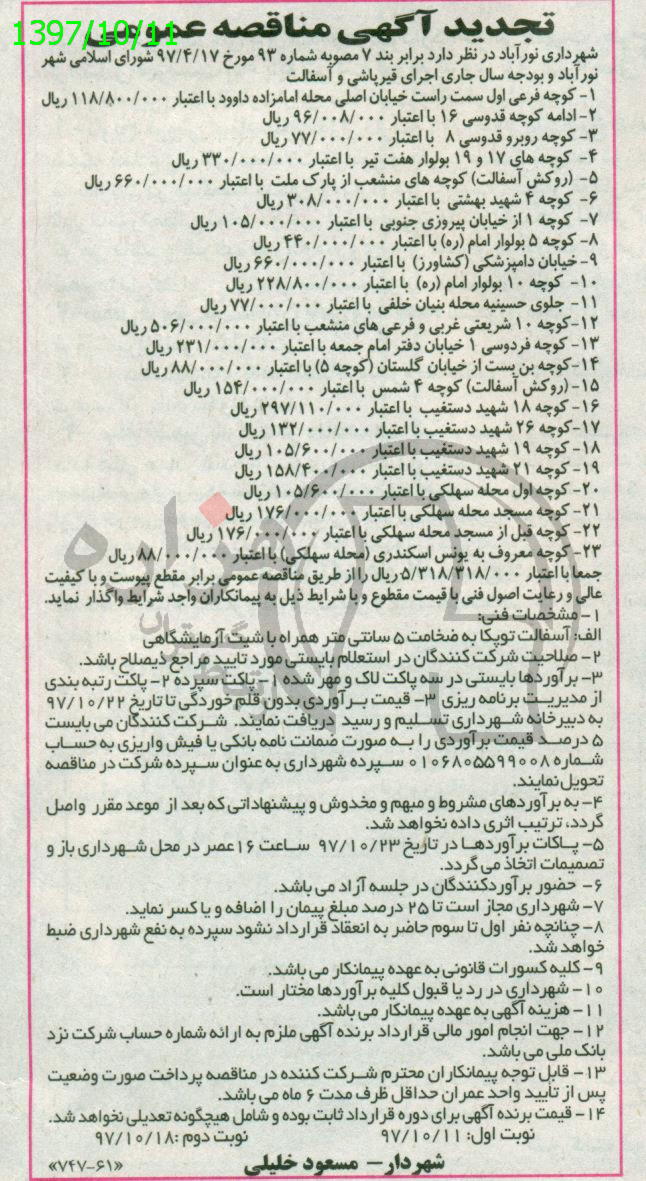 تجدید آگهی مناقصه عمومی
1397/10/11
شهرداری نورآباد در نظر دارد برابر بند ۷ مصوبه شماره ۹۳ مورخ ۹۷/۴/۱۷ شورای اسلامی شهر
نورآباد و بودجه سال جاری اجرای قیرپاشی و آسفالت
۱- کوچه فرعی اول سمت راست خیابان اصلی محله امامزاده داوود با اعتبار ۱۱۸/۸۰۰/۰۰۰ ریال
۲- ادامه کوچه قدوسی ۱۶ با اعتبار ۹۶/۰۰۸/۰۰۰ ریال
۳- کوچه روبرو قدوسی ۸ با اعتبار ۷۷/۰۰۰/۰۰۰ ریال
۴- کوچه های ۱۷ و ۱۹ بولوار هفت تیر با اعتبار ۳۳۰/۰۰۰/۰۰۰ ریال
۵- (روکش آسفالت) کوچه های منشعب از پارک ملت با اعتبار ۶۶۰/۰۰۰/۰۰۰ ریال
۶- کوچه ۴ شهید بهشتی با اعتبار ۳۰۸/۰۰۰/۰۰۰ ریال
۷- کوچه ۱ از خیابان پیروزی جنوبی با اعتبار ۱۰۵/۰۰۰/۰۰۰ ریال
۸- کوچه ۵ بولوار امام (ره) با اعتبار ۴۴۰/۰۰۰/۰۰۰ ریال
۹- خیابان دامپزشکی (کشاورز) با اعتبار ۶۶۰/۰۰۰/۰۰۰ ریال
۱۰- کوچه ۱۰ بولوار امام (ره) با اعتبار ۲۲۸/۸۰۰/۰۰۰ ریال
۱۱- جلوی حسینیه محله بنیان خلفی با اعتبار ۷۷/۰۰۰/۰۰۰ ریال
۱۲- کوچه ۱۰ شریعتی غربی و فرعی های منشعب با اعتبار ۵۰۶/۰۰۰/۰۰۰ ریال
۱۳- کوچه فردوسی ۱ خیابان دفتر امام جمعه با اعتبار ۲۳۱/۰۰۰/۰۰۰ ریال
۱۴- کوچه بن بست از خیابان گلستان (کوچه ۵) با اعتبار ۸۸/۰۰۰/۰۰۰ ریال
۱۵- (روکش آسفالت) کوچه ۴ شمس با اعتبار ۱۵۴/۰۰۰/۰۰۰ ریال
۱۶- کوچه ۱۸ شهید دستغیب با اعتبار ۲۹۷/۱۱۰/۰۰۰ ریال
۱۷- کوچه ۲۶ شهید دستغیب با اعتبار ۱۳۲/۰۰۰/۰۰۰ ریال
۱۸- کوچه ۱۹ شهید دستغیب با اعتبار ۱۰۵/۶۰۰/۰۰۰ ریال
۱۹- کوچه ۲۱ شهید دستغیب با اعتبار ۱۵۸/۴۰۰/۰۰۰ ریال
۲۰- کوچه اول محله سهلکی با اعتبار ۱۰۵/۶۰۰/۰۰۰ ریال
۲۱- کوچه مسجد محله سهلکی با اعتبار ۱۷۶/۰۰۰/۰۰۰ ریال
۲۲- کوچه قبل از مسجد محله سهلکی با اعتبار ۱۷۶/۰۰۰/۰۰۰ ریال
۲۳- کوچه معروف به یونس اسکندری (محله سهلکی) با اعتبار ۸۸/۰۰۰/۰۰۰ ریال
جمعا با اعتبار ۵/۳۱۸/۳۱۸/۰۰۰ ریال را از طریق مناقصه عمومی برابر مقطع پیوست و با کیفیت
عالی و رعایت اصول فنی با قیمت مقطوع و با شرایط ذیل به پیمانکاران واجد شرایط واگذار نماید.
۱- مشخصات فنی:
الف: آسفالت توپکا به ضخامت ۵ سانتی متر همراه با شیت آزمایشگاهی
۲- صلاحیت شرکت کنندگان در استعلام بایستی مورد تایید مراجع ذیصلاح باشد.
۳- برآوردها بایستی در سه پاکت لاک و مهر شده ۱- پاکت سپرده ۲- پاکت رتبه بندی
از مدیریت برنامه ریزی ۳- قیمت برآوردی بدون قلم خوردگی تا تاریخ ۹۷/۱۰/۲۲
به دبیرخانه شهرداری تسلیم و رسید دریافت نمایند. شرکت کنندگان می بایست
۵ درصد قیمت برآوردی را به صورت ضمانت نامه بانکی یا فیش واریزی به حساب
شماره ۰۱۰۶۸۰۵۵۹۹۰۰۸ سپرده شهرداری به عنوان سپرده شرکت در مناقصه
تحویل نمایند.
۴- به برآوردهای مشروط و مبهم و مخدوش و پیشنهاداتی که بعد از موعد مقرر واصل
گردد، ترتیب اثری داده نخواهد شد.
۵- پاکات برآوردها در تاریخ ۹۷/۱۰/۲۳ ساعت ۱۶ عصر در محل شهرداری باز و
تصمیمات اتخاذ می گردد.
۶- حضور برآوردکنندگان در جلسه آزاد می باشد.
۷- شهرداری مجاز است تا ۲۵ درصد مبلغ پیمان را اضافه و یا کسر نماید.
۸- چنانچه نفر اول تا سوم حاضر به انعقاد قرارداد نشود سپرده به نفع شهرداری ضبط
خواهد شد.
۹- کلیه کسورات قانونی به عهده پیمانکار می باشد.
۱۰- شهرداری در رد یا قبول کلیه برآوردها مختار است.
۱۱- هزینه آگهی به عهده پیمانکار می باشد.
۱۲- جهت انجام امور مالی قرارداد برنده آگهی ملزم به ارائه شماره حساب شرکت نزد
بانک ملی می باشد.
۱۳- قابل توجه پیمانکاران محترم شرکت کننده در مناقصه پرداخت صورت وضعیت
پس از تایید واحد عمران حداقل ظرف مدت ۶ ماه می باشد.
۱۴- قیمت برنده آگهی برای دوره قرارداد ثابت بوده و شامل هیچگونه تعدیلی نخواهد شد.
نوبت اول: ۹۷/۱۰/۱۱ نوبت دوم: ۹۷/۱۰/۱۸
شهردار - مسعود خلیلی «۷۴۷-۶۱»